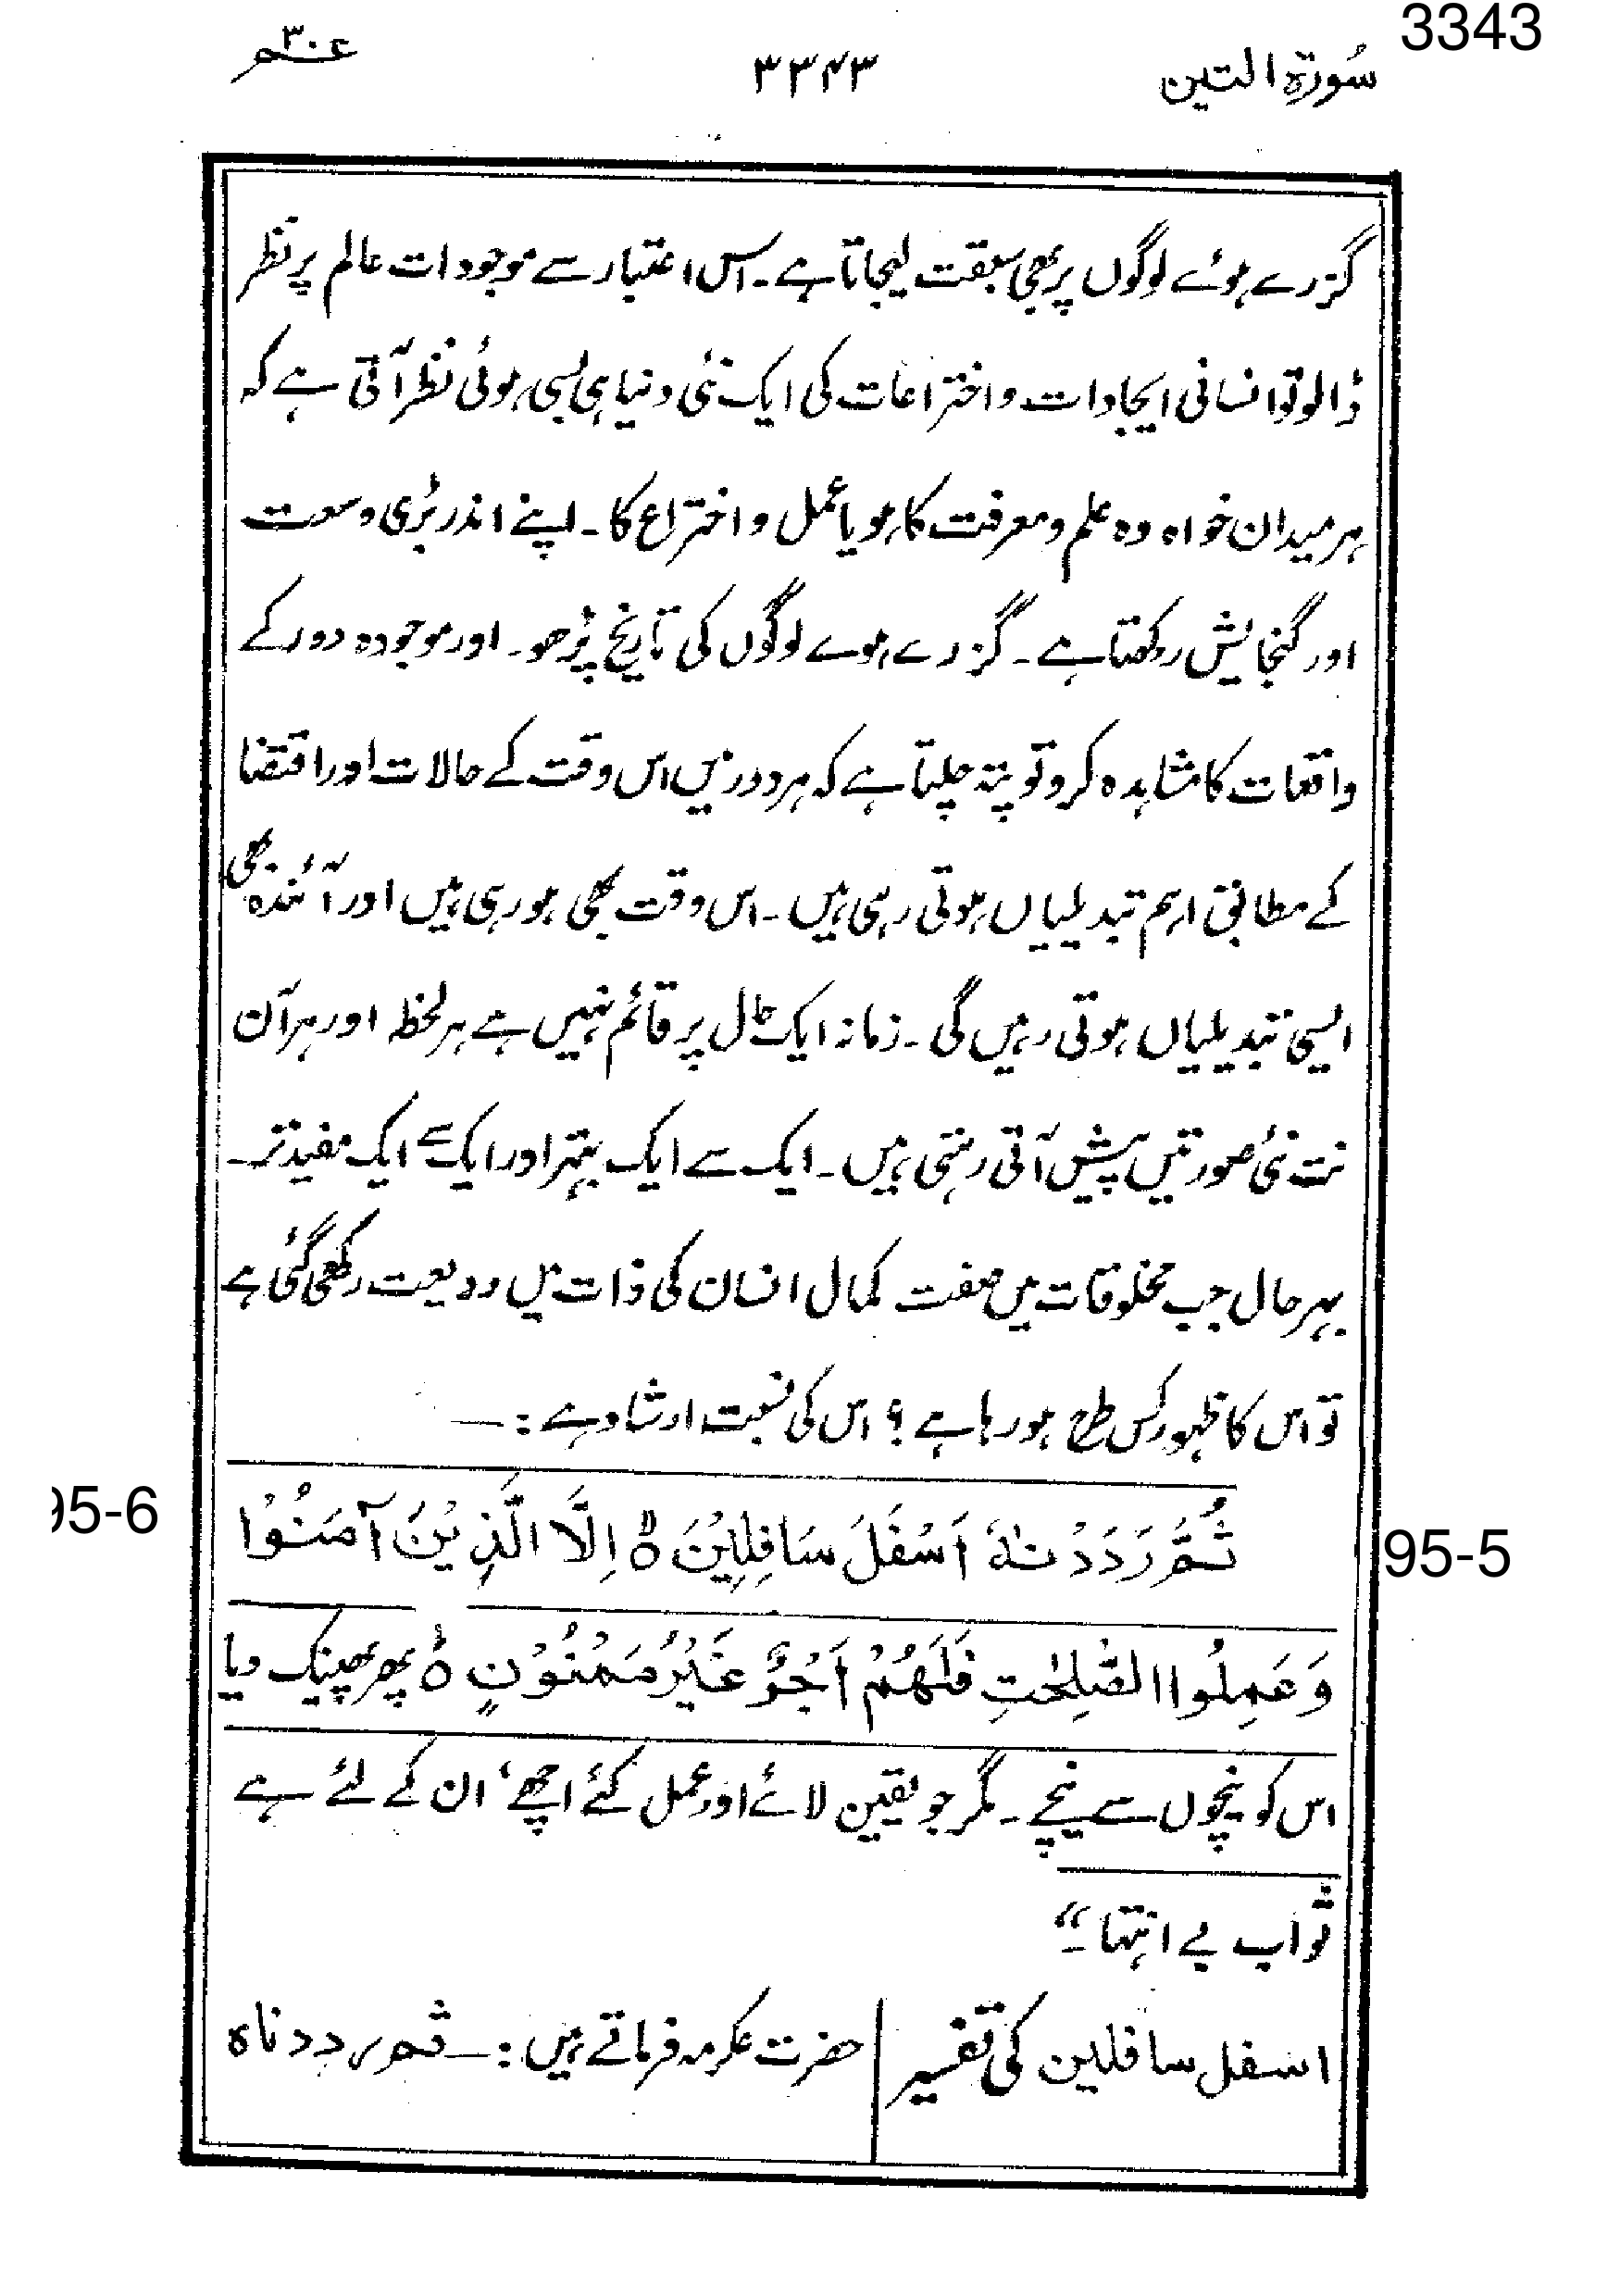 3343
سُورۃ التین ۳۳۴۳ عـم ۳۰
گزرے ہوئے لوگوں پر بھی سبقت لیجاتا ہے۔ اس اعتبار سے موجودات عالم پر نظر
ڈالو تو انسانی ایجادات و اختراعات کی ایک نئی دنیا ہی بسی ہوئی نظر آتی ہے کہ
ہر میدان خواہ وہ علم و معرفت کا ہو یا عمل و اختراع کا۔ اپنے اندر بڑی وسعت
اور گنجایش رکھتا ہے۔ گزرے ہوے لوگوں کی تاریخ پڑھو۔ اور موجودہ دور کے
واقعات کا مشاہدہ کرو تو پتہ چلتا ہے کہ ہر دور میں اس وقت کے حالات اور اقتضا
کے مطابق اہم تبدیلیاں ہوتی رہی ہیں۔ اس وقت بھی ہو رہی ہیں اور آئندہ بھی
ایسی تبدیلیاں ہوتی رہیں گی۔ زمانہ ایک حال پر قائم نہیں ہے ہر لحظہ اور ہر آن
نت نئی صورتیں پیش آتی رہتی ہیں۔ ایک سے ایک بہتر اور ایک سے ایک مفید تر۔
بہر حال جب مخلوقات میں صفت کمال انسان کی ذات میں ودیعت رکھی گئی ہے
تو اس کا ظہور کس طرح ہو رہا ہے ؟ اس کی نسبت ارشاد ہے :—
ثُمَّ رَدَدْنٰهُ اَسْفَلَ سَافِلِيْنَ ۵ۙ اِلَّا الَّذِيْنَ آمَنُوْا
95-6
95-5
وَعَمِلُوا الصّٰلِحٰتِ فَلَهُمْ اَجْرٌ غَيْرُ مَمْنُوْنٍ ۵ؕ پھر پھینک دیا
اس کو نیچوں سے نیچے۔ مگر جو یقین لائے اور عمل کئے اچھے، ان کے لئے ہے
ثواب بے انتہا۔“
اسفل سافلین کی تفسیر | حضرت عکرمہ فرماتے ہیں :— ثم رددناہ